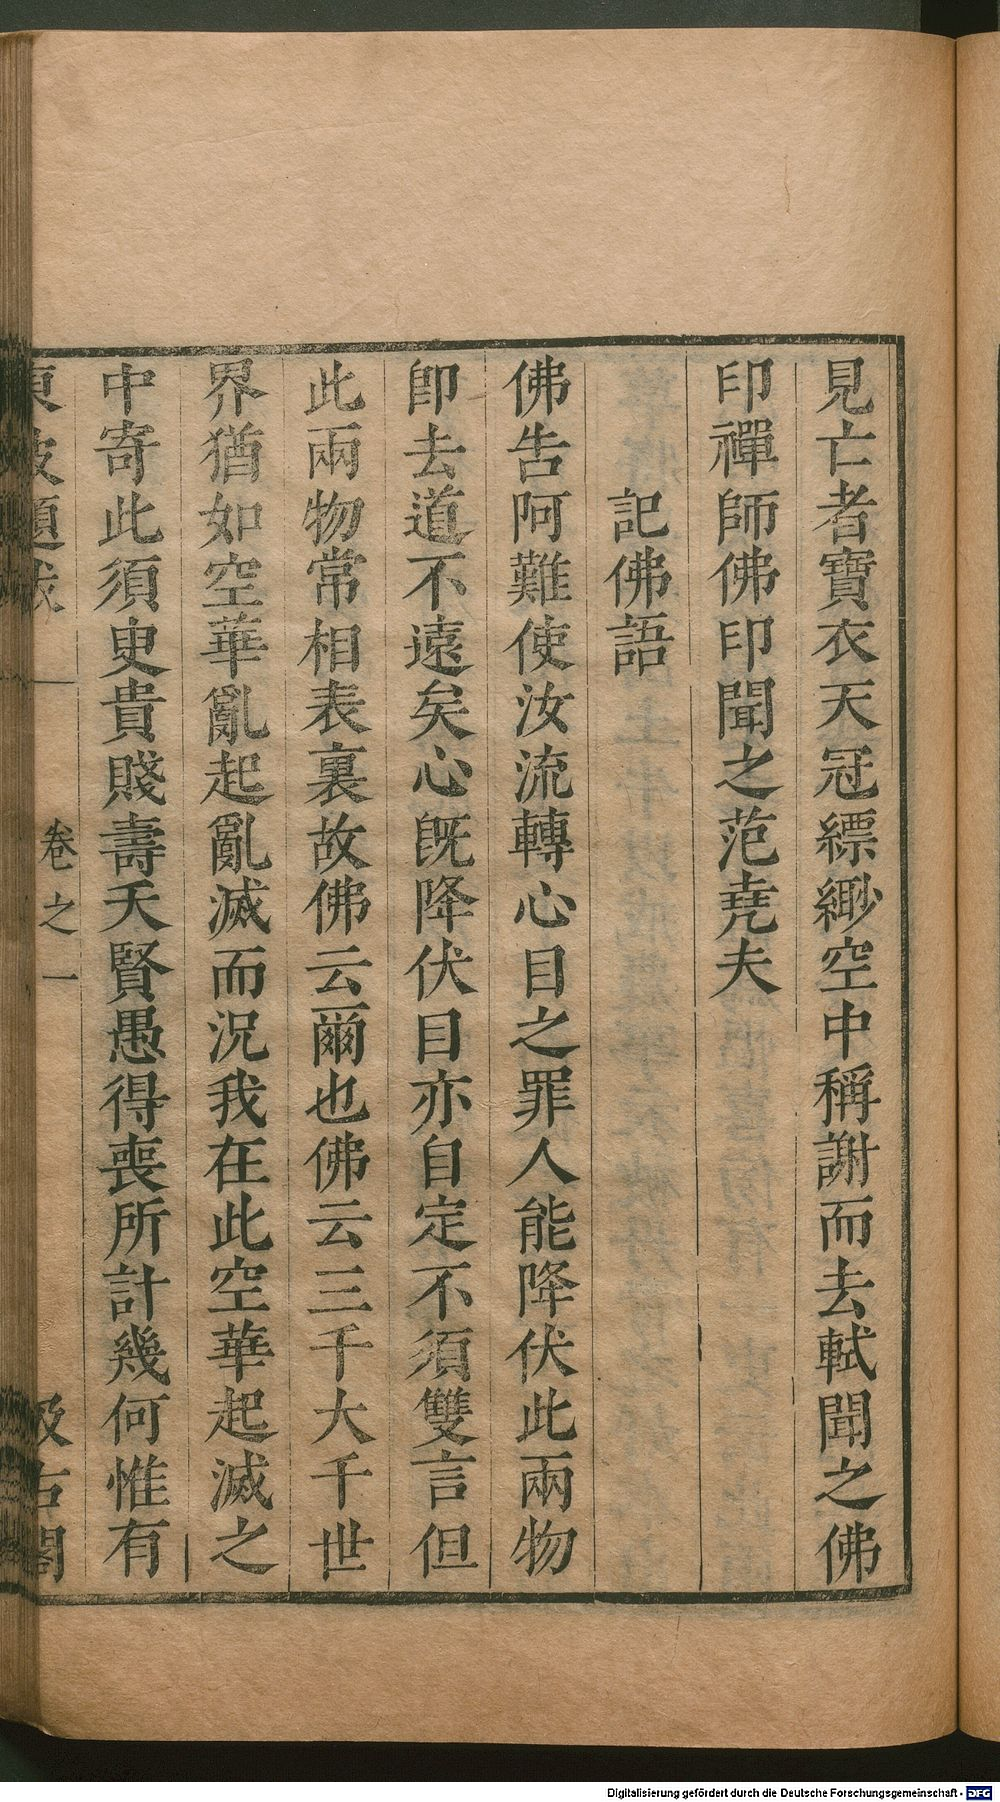 見亡者寶衣天冠縹緲空中稱謝而去軾聞之佛
印禪師佛印聞之范堯夫
記佛語
佛告阿難使汝流轉心目之罪人能降伏此兩物
卽去道不遠矣心旣降伏目亦自定不須雙言但
此兩物常相表裏故佛云爾也佛云三千大千世
界猶如空華亂起亂滅而況我在此空華起滅之
中寄此須臾貴賤壽夭賢愚得喪所計幾何惟有
東坡題跋 卷之一 汲古閣
Digitalisierung gefördert durch die Deutsche Forschungsgemeinschaft - DFG